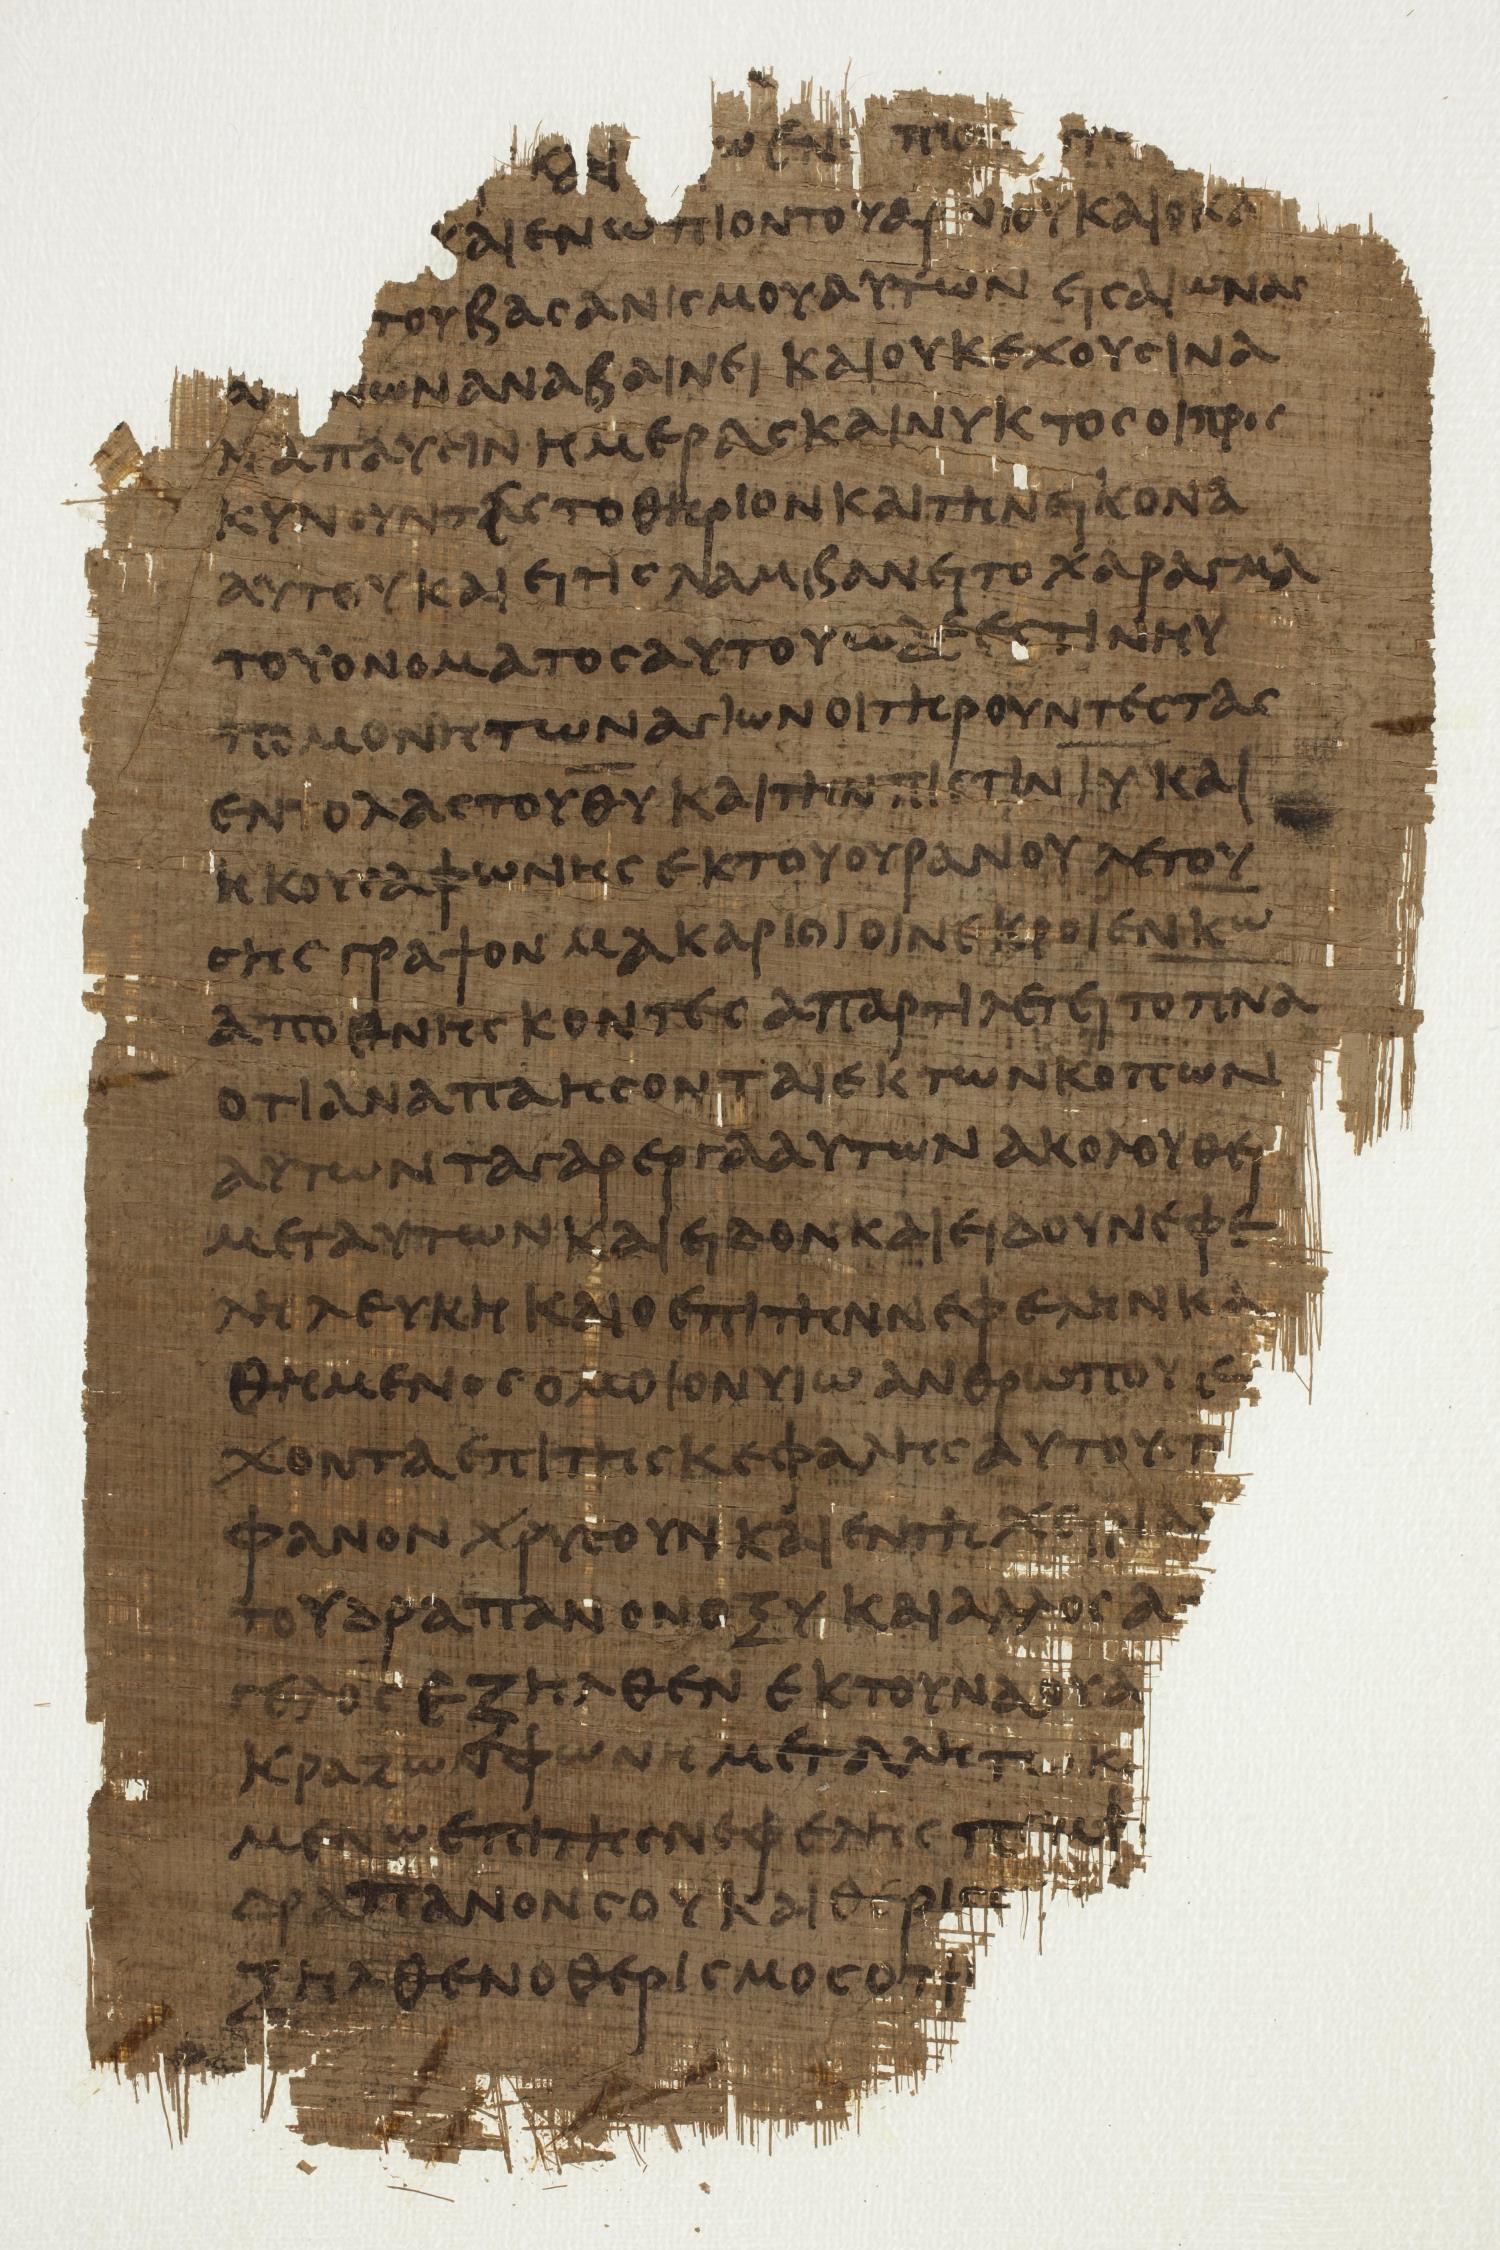 ενωπιον
και ενωπιον του αρνιου και ο κα
του βασανισμου αυτων εις αιωνας
αιωνων αναβαινει και ουκ εχουσιν α
ναπαυσιν ημερας και νυκτος οι προσ
κυνουντες το θηριον και την εικονα
αυτου και ει τις λαμβανει το χαραγμα
του ονοματος αυτου ωδε εστιν η υ
πομονη των αγιων οι τηρουντες τας
εντολας του θυ και την πιστιν ιυ και
ηκουσα φωνης εκ του ουρανου λεγου
σης γραψον μακαριοι οι νεκροι εν κω
αποθνησκοντες απ αρτι λεγει το πνα
οτι αναπαησονται εκ των κοπων
αυτων τα γαρ εργα αυτων ακολουθει
μετ αυτων και ειδον και ειδου νεφε
λη λευκη και ο επι την νεφελην κα
θημενος ομοιον υιω ανθρωπου ε
χοντα επι της κεφαλης αυτου στ
φανον χρυσουν και εν τη χειρι αυ
του δραπανον οξυ και αλλος α
γελος εξηλθεν εκ του ναου α
κραζων φωνη μεγαλη τω κ
μενω επι της νεφελης πεμψ
δραπανον σου και θερισ
ξηλθεν ο θερισμος οτι